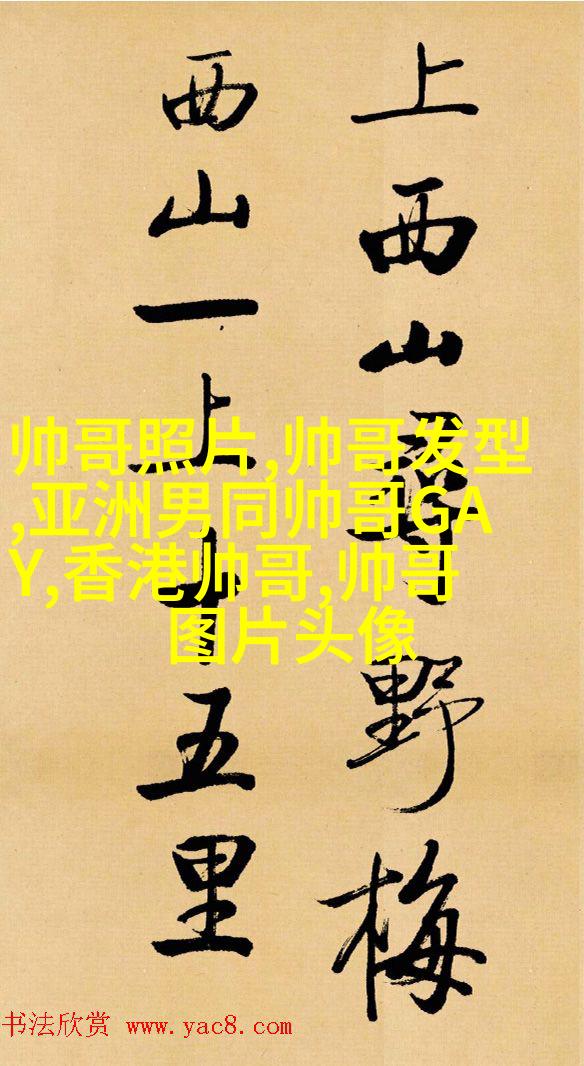 上西山尋野梅
西山一上十五里
帅哥照片,帅哥发型
,亚洲男同帅哥GA
Y,香港帅哥,帅哥
图片头像
书法欣赏 www.yac8.com